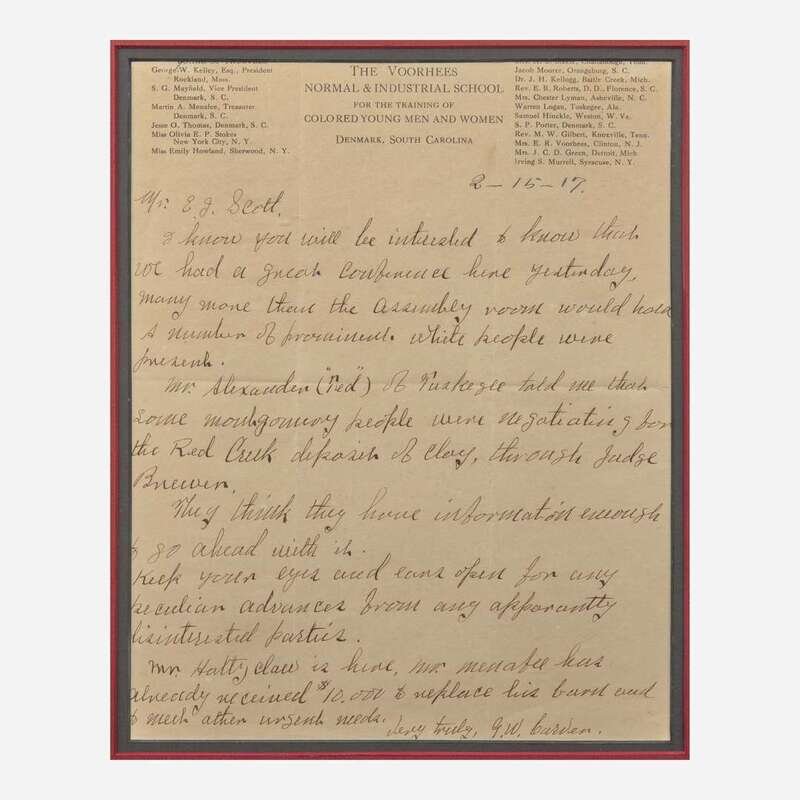 George W. Kelley, Esq., President
Rockland, Mass.
S. G. Mayfield, Vice President
Denmark, S. C.
Martin A. Menafee, Treasurer
Denmark, S. C.
Jesse O. Thomas, Denmark, S. C.
Miss Olivia E. P. Stokes
New York City, N. Y.
Miss Emily Howland, Sherwood, N. Y.
THE VOORHEES
NORMAL & INDUSTRIAL SCHOOL
FOR THE TRAINING OF
COLORED YOUNG MEN AND WOMEN
DENMARK, SOUTH CAROLINA
Jacob Moorer, Orangeburg, S. C.
Dr. J. H. Kellogg, Battle Creek, Mich.
Rev. E. R. Roberts, D. D., Florence, S. C.
Mrs. Chester Lyman, Asheville, N. C.
Warren Logan, Tuskegee, Ala.
Samuel Hinckle, Weston, W. Va.
S. P. Porter, Denmark, S. C.
Rev. M. W. Gilbert, Knoxville, Tenn.
Mrs. E. R. Voorhees, Clinton, N. J.
Mrs. J. C. D. Green, Detroit, Mich
Irving S. Murrell, Syracuse, N. Y.
2-15-17.
Mr. E. J. Scott,
I know you will be interested to know that
we had a great conference here yesterday,
many more than the assembly room would hold
A number of prominent white people were
present.
Mr. Alexander ("Ted") of Tuskegee told me that
some montgomery people were negotiating for
the Red Creek deposit of clay, through Judge
Brewer,
They think they have information enough
to go ahead with it.
Keep your eyes and ears open for any
peculiar advances from any apparantly
disinterested parties.
Mr. is here, Mr. menafee has
already received $10.000 to replace his barn and
to meet other urgent needs.
Very truly, G.W. Carver.